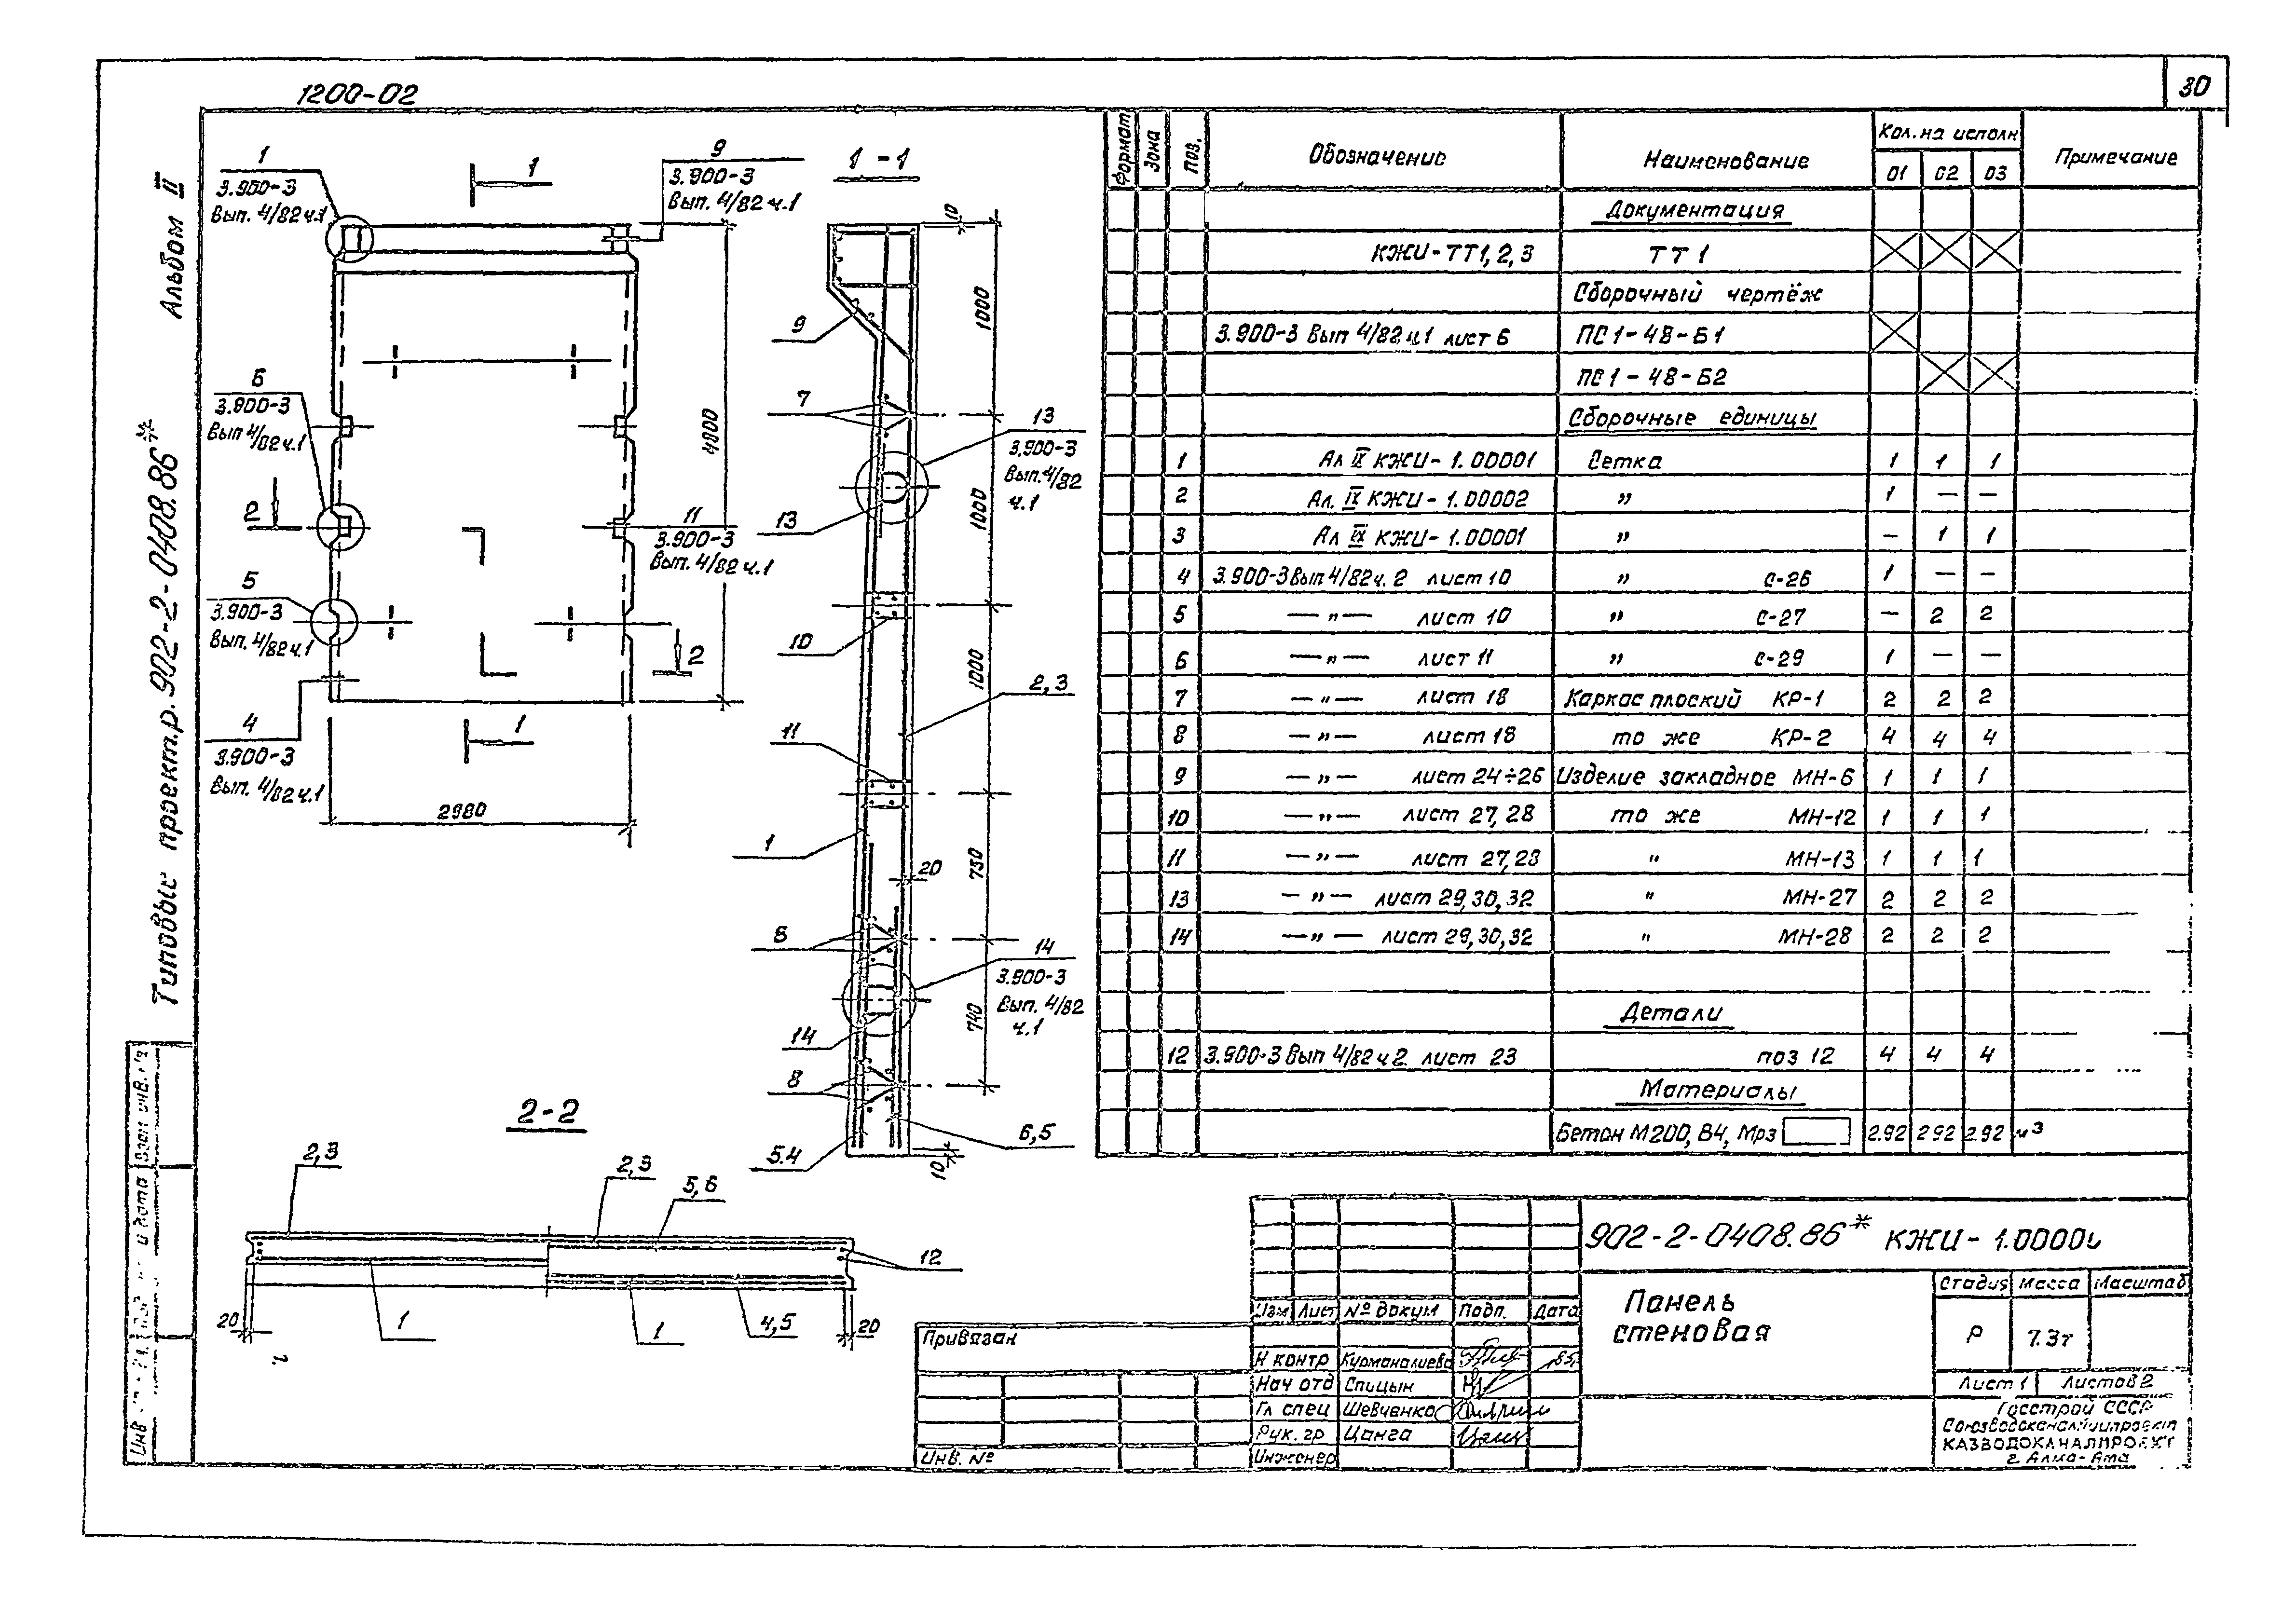 30
1200-02
Альбом II
Типовые проект.р. 902-2-0408.86*
1
3.900-3
Вып. 4/82 ч.1
1
9
3.900-3
Вып. 4/82 ч.1
Б
3.900-3
Вып 4/82 ч.1
2
5
3.900-3
Вып. 4/82 ч.1
4
3.900-3
Вып. 4/82 ч.1
11
3.900-3
Вып. 4/82 ч.1
2
1
2980
4800
1-1
10
9
7
13
3.900-3
Вып. 4/82
ч.1
13
10
2,3
11
1
20
8
14
3.900-3
Вып. 4/82
ч.1
14
8
5.4
6,5
10
1000
1000
1000
750
740
2-2
2,3
2,3
5,6
12
1
1
4,5
20
20
Формат Зона Поз. Обозначение Наименование Кол. на исполн Примечание
01 02 03
Документация
КЖИ-ТТ1,2,3 ТТ1
Сборочный чертёж
3.900-3 Вып 4/82 ч.1 лист 6 ПС1-48-Б1
ПС1-48-Б2
Сборочные единицы
1 Ал IX КЖИ-1.00001 Сетка 1 1 1
2 Ал. IX КЖИ-1.00002 " 1 — —
3 Ал IX КЖИ-1.00001 " — 1 1
4 3.900-3 Вып 4/82 ч. 2 лист 10 " С-26 1 — —
5 —"— лист 10 " С-27 — 2 2
6 —"— лист 11 " С-29 1 — —
7 —"— лист 18 Каркас плоский КР-1 2 2 2
8 —"— лист 18 то же КР-2 4 4 4
9 —"— лист 24÷26 Изделие закладное МН-6 1 1 1
10 —"— лист 27,28 то же МН-12 1 1 1
11 —"— лист 27,28 " МН-13 1 1 1
13 —"— лист 29,30,32 " МН-27 2 2 2
14 —"— лист 29,30,32 " МН-28 2 2 2
Детали
12 3.900-3 Вып 4/82 ч 2. лист 23 поз 12 4 4 4
Материалы
Бетон М200, В4, Мрз 2.92 2.92 2.92 м³
902-2-0408.86* КЖИ-1.0000
Панель
стеновая
Стадия Масса Масштаб
Р 7.3т
Лист 1 Листов 2
Госстрой СССР
Союзводоканалниипроект
КАЗВОДОКАНАЛПРОЕКТ
г. Алма-Ата
Изм Лист № докум Подп. Дата
Н контр Курманалиева 85
Нач отд Спицын
Гл спец Шевченко
Рук. гр Цанга
Инженер
Привязан
Инв. №
Взам инв. №
и дата
Инв